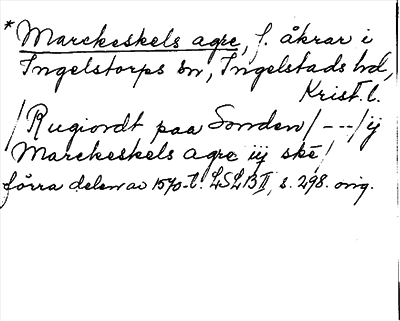 *Marckeskels agre, f. åkrar i
Ingelstorps sn, Ingelstads hd,
Krist. l.
/Rugiordt paa Sonden/ ---/ij
Marckeskels agre iij ske/
förra delen av 1570-t. LSLB II, s. 298. orig.